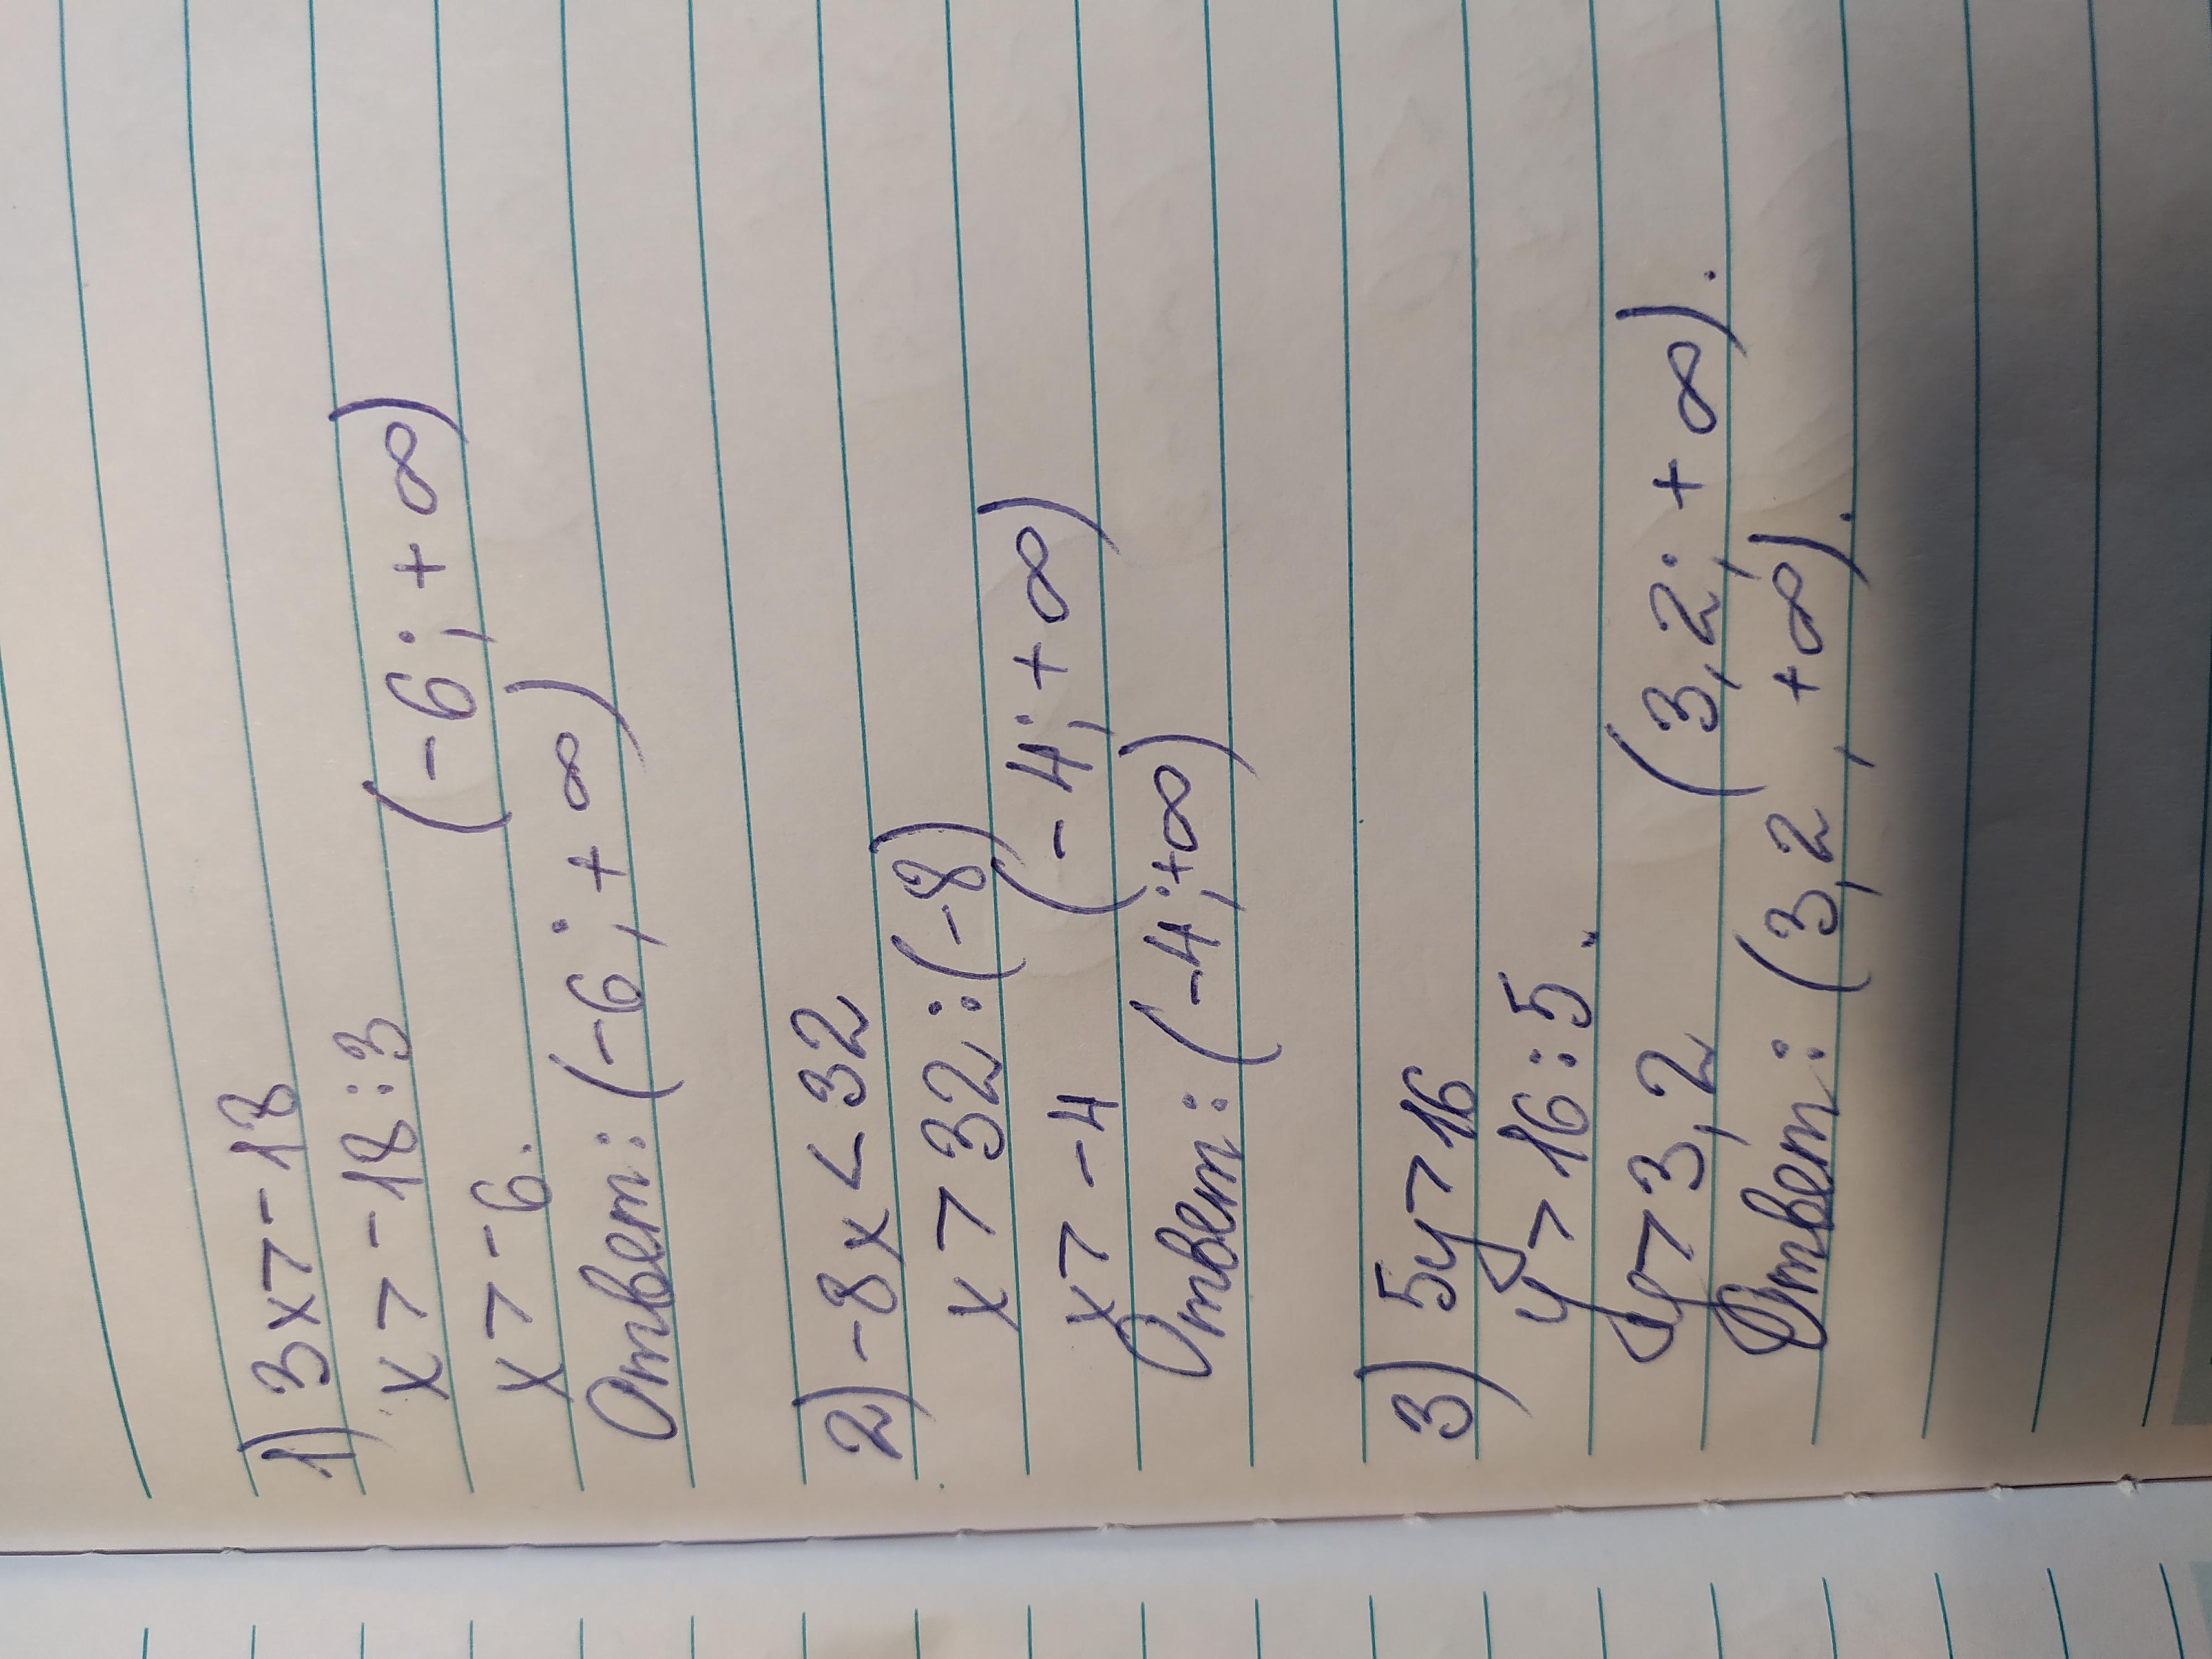 1) 3x > -18
x > -18 : 3
x > -6. (-6; +∞)
Ответ: (-6; +∞)
2) -8x < 32
x > 32 : (-8)
x > -4 (-4; +∞)
Ответ: (-4; +∞)
3) 5y > 16
y > 16 : 5
y > 3,2 (3,2; +∞).
Ответ: (3,2 , +∞).